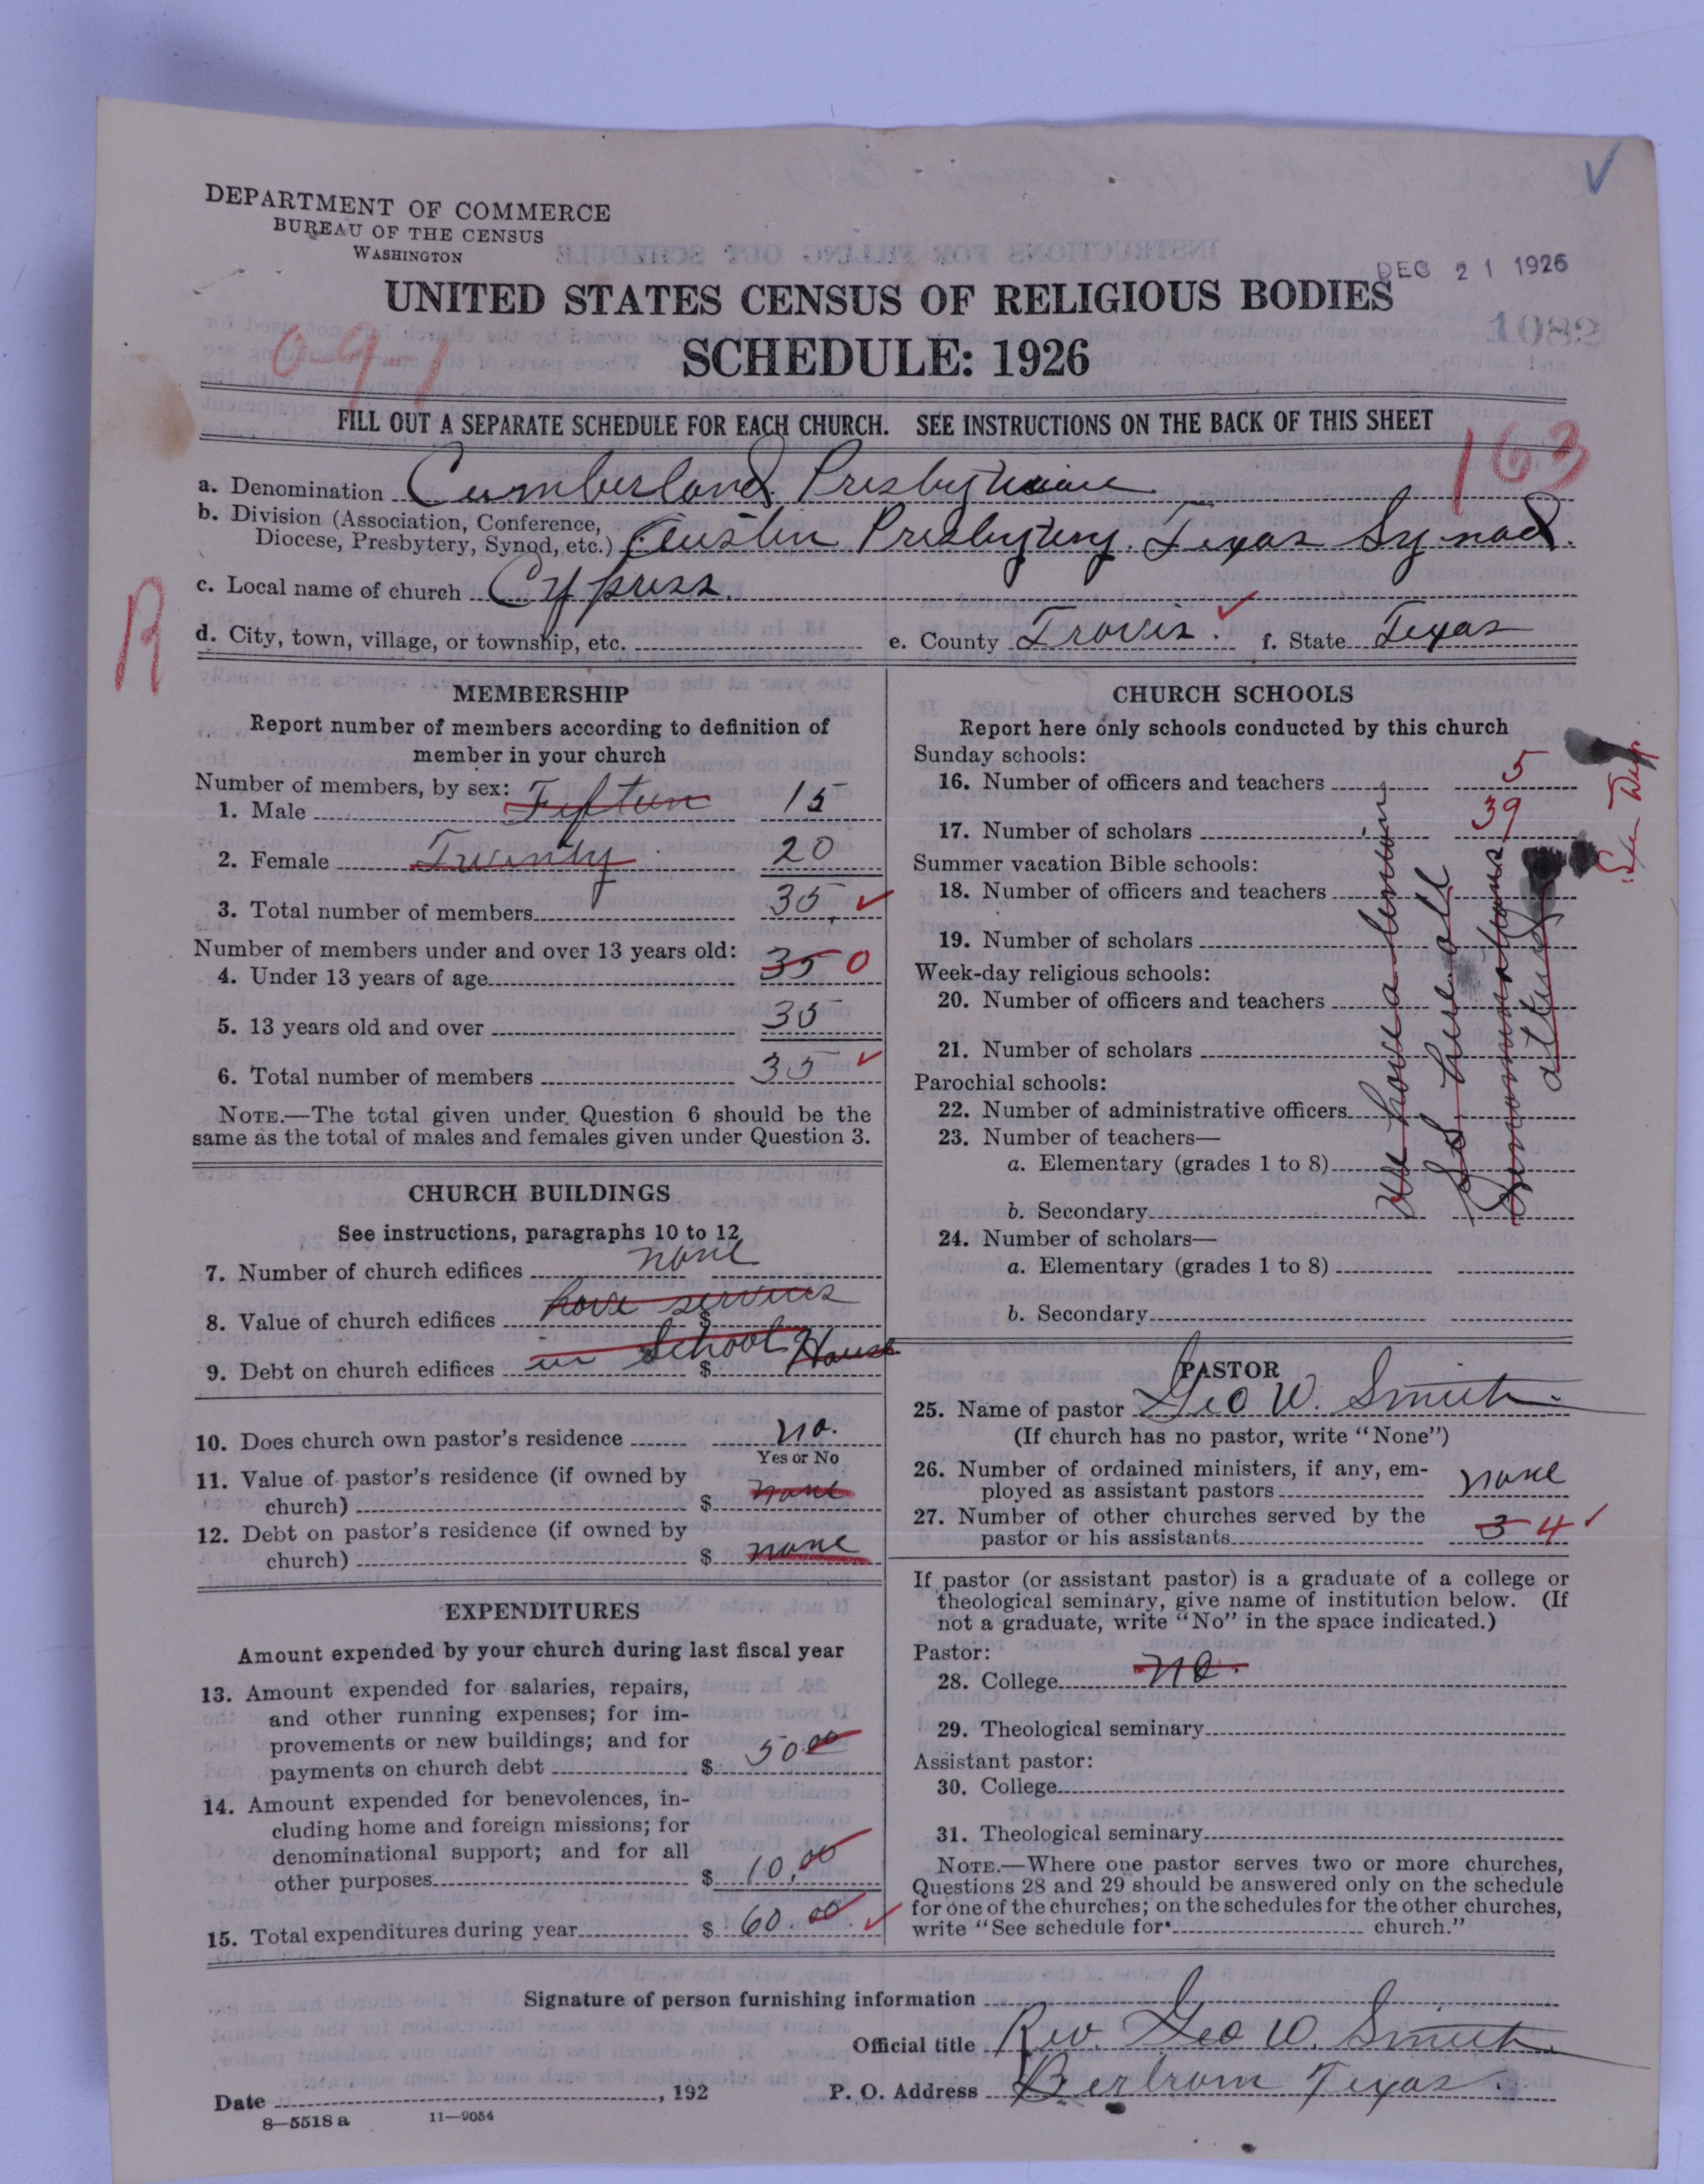 DEPARTMENT OF COMMERCE
BUREAU OF THE CENSUS
WASHINGTON
DEC 21 1926
UNITED STATES CENSUS OF RELIGIOUS BODIES
1082
091
SCHEDULE: 1926
FILL OUT A SEPARATE SCHEDULE FOR EACH CHURCH. SEE INSTRUCTIONS ON THE BACK OF THIS SHEET
163
a. Denomination Cumberland Presbyterian
b. Division (Association, Conference,
Diocese, Presbytery, Synod, etc.) Austin Presbytery. Texas Synod.
c. Local name of church Cypress.
R
d. City, town, village, or township, etc. e. County Travis. f. State Texas
MEMBERSHIP
Report number of members according to definition of
member in your church
Number of members, by sex:
1. Male Fifteen 15
2. Female Twenty 20
3. Total number of members 35.
Number of members under and over 13 years old:
4. Under 13 years of age 35 0
5. 13 years old and over 35
6. Total number of members 35
NOTE.—The total given under Question 6 should be the
same as the total of males and females given under Question 3.
CHURCH BUILDINGS
See instructions, paragraphs 10 to 12
7. Number of church edifices none
8. Value of church edifices $ have services
9. Debt on church edifices $ in School House
10. Does church own pastor's residence no.
Yes or No
11. Value of pastor's residence (if owned by
church) $ none
12. Debt on pastor's residence (if owned by
church) $ none
EXPENDITURES
Amount expended by your church during last fiscal year
13. Amount expended for salaries, repairs,
and other running expenses; for im-
provements or new buildings; and for
payments on church debt $ 50 00
14. Amount expended for benevolences, in-
cluding home and foreign missions; for
denominational support; and for all
other purposes $ 10.00
15. Total expenditures during year $ 60.00
CHURCH SCHOOLS
Report here only schools conducted by this church
Sunday schools:
16. Number of officers and teachers 5
17. Number of scholars 39
Summer vacation Bible schools:
18. Number of officers and teachers
19. Number of scholars
Week-day religious schools:
20. Number of officers and teachers
21. Number of scholars
Parochial schools:
22. Number of administrative officers
23. Number of teachers—
a. Elementary (grades 1 to 8)
b. Secondary
24. Number of scholars—
a. Elementary (grades 1 to 8)
b. Secondary
We have a
S S here all
Denominations
attend
PASTOR
25. Name of pastor Geo W. Smith.
(If church has no pastor, write "None")
26. Number of ordained ministers, if any, em-
ployed as assistant pastors none
27. Number of other churches served by the
pastor or his assistants 3 4
If pastor (or assistant pastor) is a graduate of a college or
theological seminary, give name of institution below. (If
not a graduate, write "No" in the space indicated.)
Pastor:
28. College no.
29. Theological seminary
Assistant pastor:
30. College
31. Theological seminary
NOTE.—Where one pastor serves two or more churches,
Questions 28 and 29 should be answered only on the schedule
for one of the churches; on the schedules for the other churches,
write "See schedule for church."
Signature of person furnishing information
Official title Rev. Geo W. Smith
Date , 192 P. O. Address Bertram Texas.
8—5518 a 11—9054